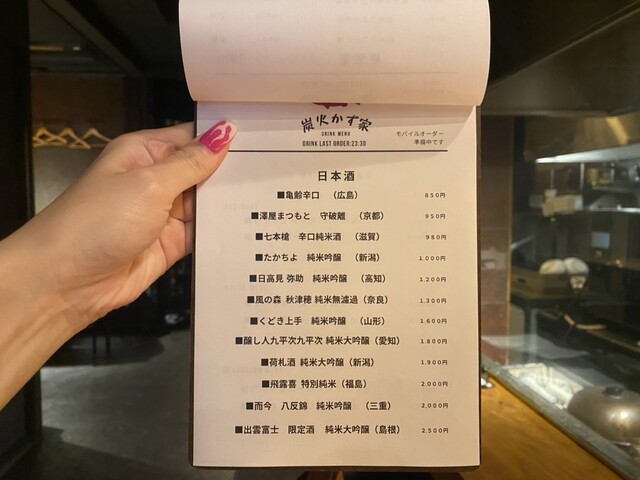 炭火かず家
DRINK MENU
DRINK LAST ORDER:23:30
モバイルオーダー
準備中です
日本酒
■亀齢辛口 （広島） 850円
■澤屋まつもと 守破離 （京都） 950円
■七本槍 辛口純米酒 （滋賀） 980円
■たかちよ 純米吟醸 （新潟） 1,000円
■日高見 弥助 純米吟醸 （高知） 1,200円
■風の森 秋津穂 純米無濾過（奈良） 1,300円
■くどき上手 純米吟醸 （山形） 1,600円
■醸し人九平次九平次 純米大吟醸（愛知） 1,800円
■荷札酒 純米大吟醸（新潟） 1,900円
■飛露喜 特別純米（福島） 2,000円
■而今 八反錦 純米吟醸 （三重） 2,000円
■出雲富士 限定酒 純米大吟醸（島根） 2,500円